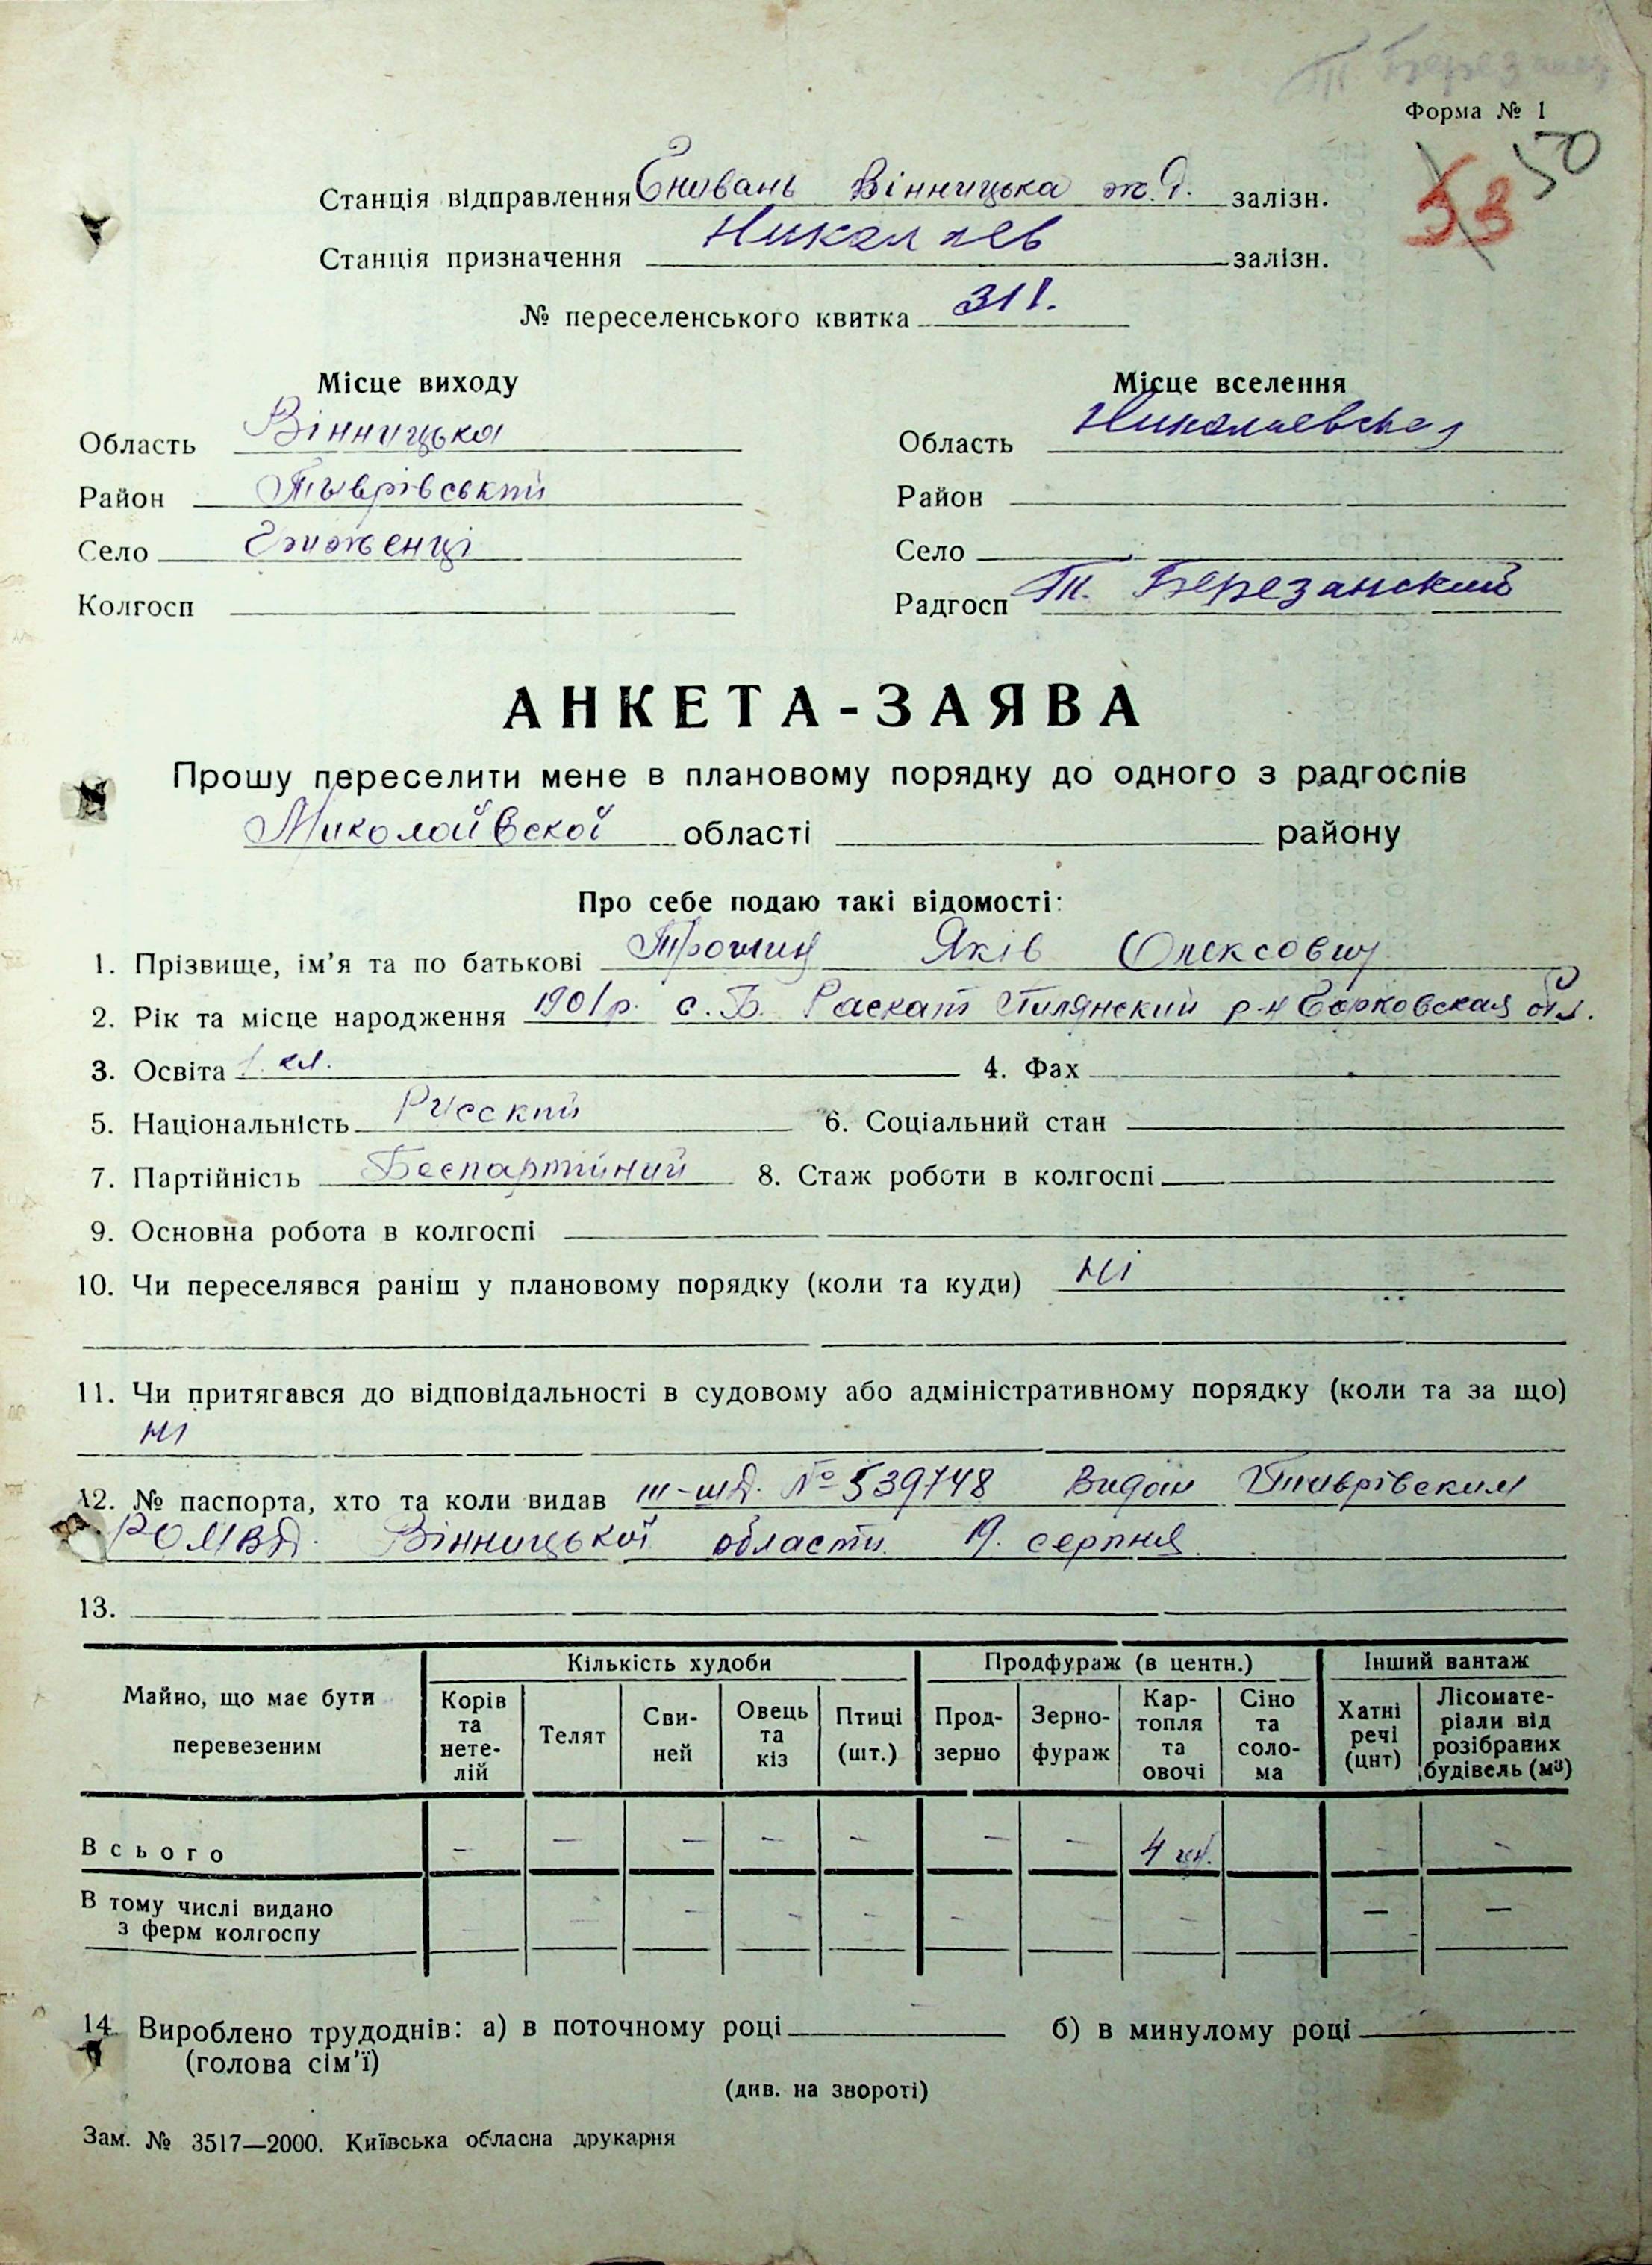 Т. Березанск
Форма № 1
50
53
Станція відправлення Гнивань Вінницька ж.д. залізн.
Станція призначення Николаев залізн.
№ переселенського квитка 311.
Місце виходу Місце вселення
Область Вінницька Область Николаевская
Район Тыврівський Район
Село Село
Колгосп Радгосп Т. Березанский
АНКЕТА-ЗАЯВА
Прошу переселити мене в плановому порядку до одного з радгоспів
Миколаївскої області району
Про себе подаю такі відомості:
1. Прізвище, ім’я та по батькові Яків Олексович
2. Рік та місце народження 1901 р. с. Б. Раскат р-н обл.
3. Освіта 1 кл. 4. Фах
5. Національність Русский 6. Соціальний стан
7. Партійність Беспартійний 8. Стаж роботи в колгоспі
9. Основна робота в колгоспі
10. Чи переселявся раніш у плановому порядку (коли та куди) ні
11. Чи притягався до відповідальності в судовому або адміністративному порядку (коли та за що)
ні
12. № паспорта, хто та коли видав № 539748 Видан Тиврівским
РОМВД. Вінницької области 19. серпня
13.
Майно, що має бути перевезеним Кількість худоби Продфураж (в центн.) Інший вантаж
Корів та нетелій Телят Свиней Овець та кіз Птиці (шт.) Продзерно Зернофураж Картопля та овочі Сіно та солома Хатні речі (цнт) Лісоматеріали від розібраних будівель (м³)
Всього — — — — — — — 4 цн. - -
В тому числі видано
з ферм колгоспу - - - - - - - - — —
14. Вироблено трудоднів: а) в поточному році б) в минулому році
(голова сім’ї)
(див. на звороті)
Зам. № 3517—2000. Київська обласна друкарня